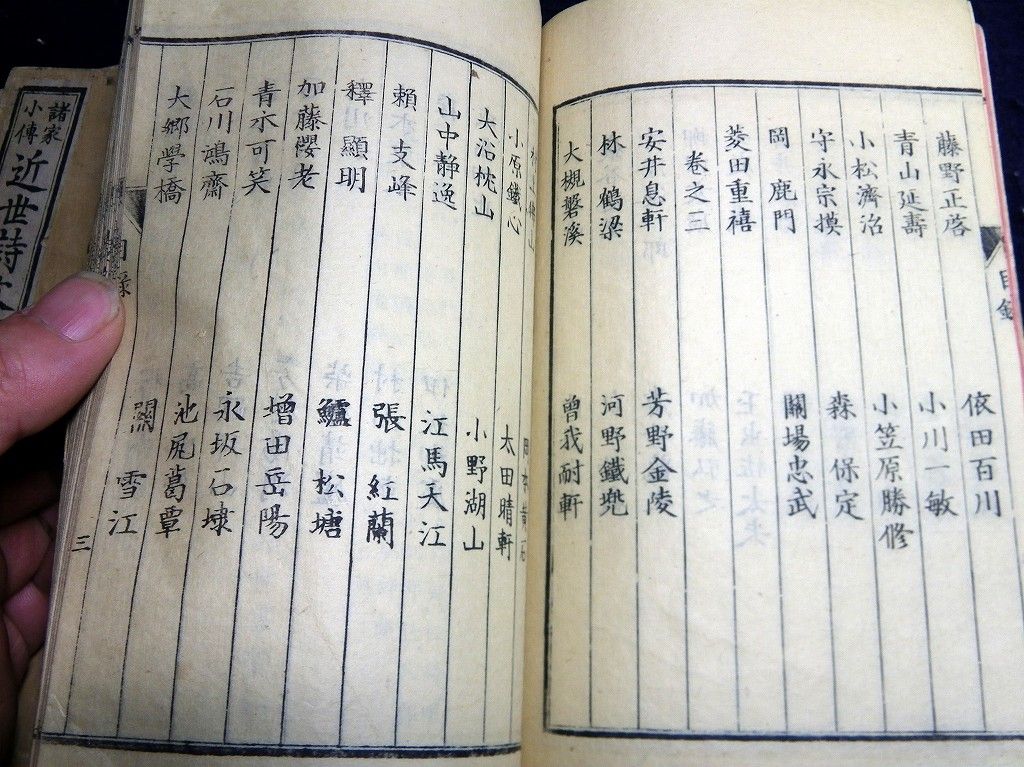 目錄
藤野正啓 依田百川
青山延壽 小川一敏
小松濟治 小笠原勝修
守永宗摸 森 保定
岡 鹿門 關場忠武
菱田重禧
卷之三
安井息軒 芳野金陵
林 鶴梁 河野鐵兜
大槻磐溪 曾我耐軒
小原鐵心 太田晴軒
大沼枕山 小野湖山
山中静逸 江馬天江
賴 支峰 張 紅蘭
釋 顯明 鱸 松塘
加藤櫻老 增田岳陽
青木可笑 永坂石埭
石川鴻齋 池尻葛覃
大郷学橋 關 雪江
目錄
三
諸家
小傳
近世詩